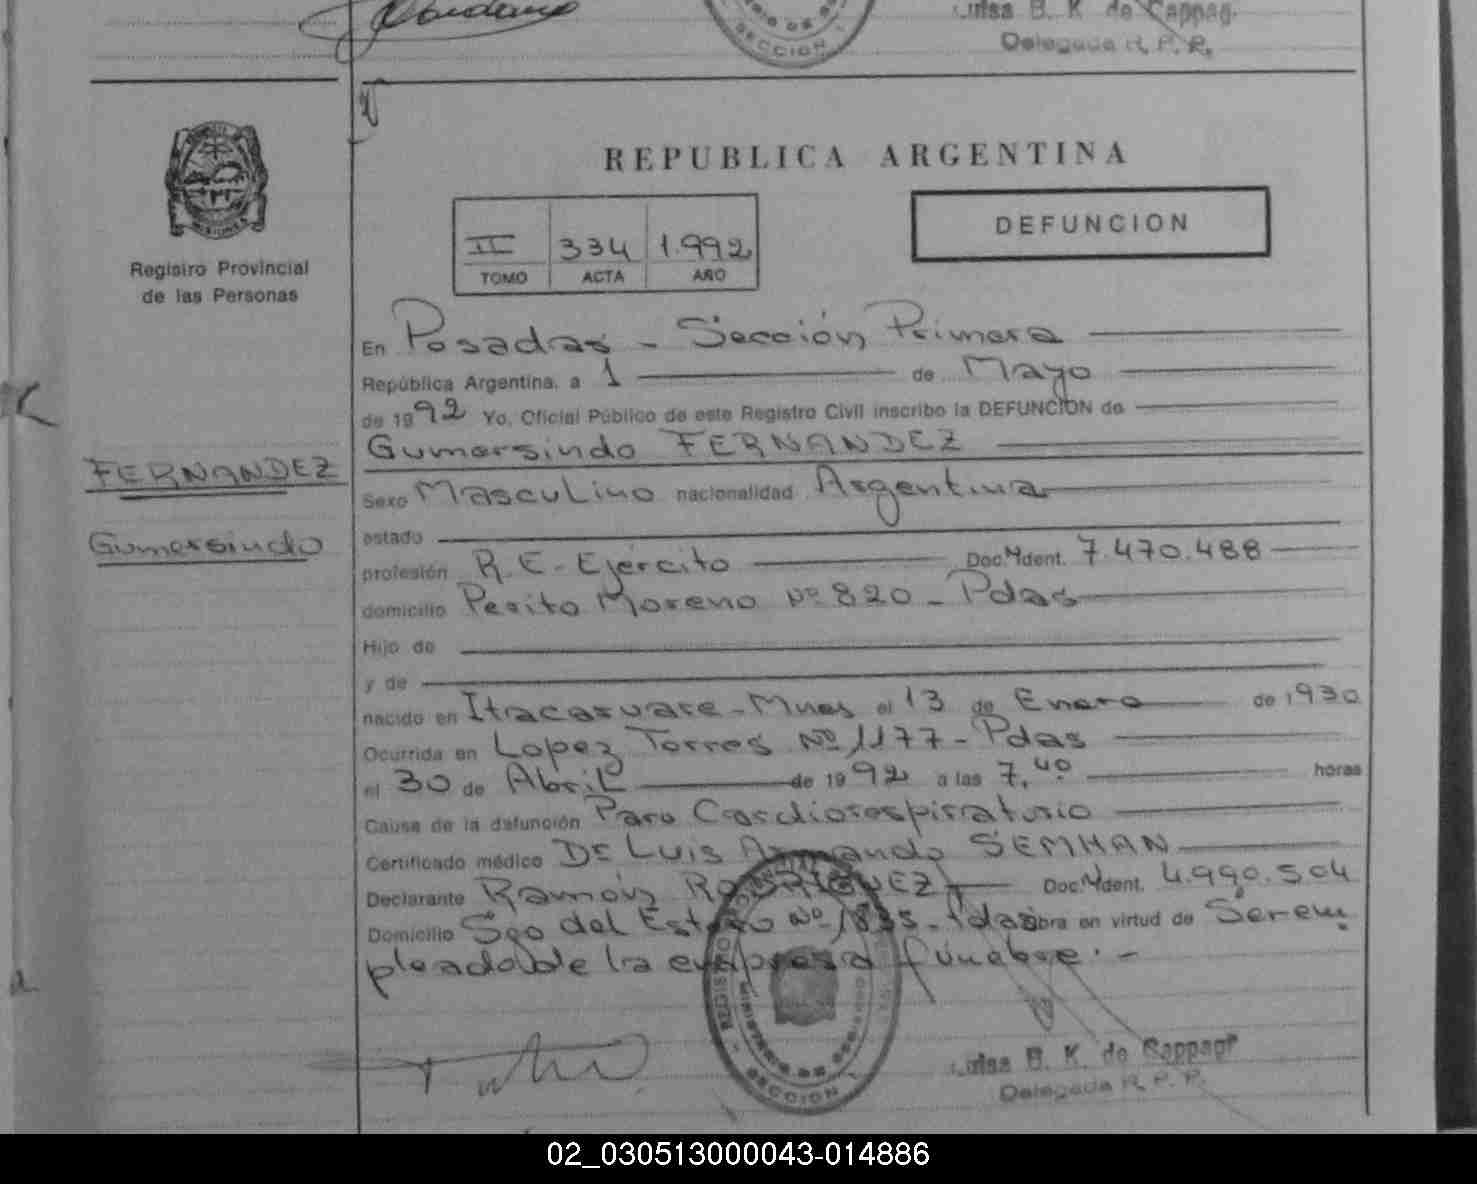 Luisa B. K. de Sappag.
SECCION 1
Delegada R. P. R.
REPUBLICA ARGENTINA
DEFUNCION
II 334 1.992
TOMO ACTA AÑO
MISIONES
Registro Provincial
de las Personas
En Posadas - Sección Primera
República Argentina, a 1 de Mayo
de 1992 Yo, Oficial Público de este Registro Civil inscribo la DEFUNCION de
Gumersindo FERNANDEZ
FERNANDEZ
Sexo Masculino nacionalidad Argentina
Gumersindo
estado
profesión R.E-Ejército Doc. Ident. 7.470.488
domicilio Perito Moreno Nº 820 - Pdas
Hijo de
y de
nacido en Itacaruare - Mnes el 13 de Enero de 1930
Ocurrida en Lopez Torres Nº 1177 - Pdas
el 30 de Abril de 1992 a las 7,40 horas
Causa de la defunción Paro Cardiorespiratorio
Certificado médico Dr Luis Armando SEMHAN
Declarante Ramón RODRIGUEZ Doc. Ident. 4.990.504
Domicilio Sgo del Estero Nº 1835 - Pdas obra en virtud de Ser em
pleado de la empresa fúnebre. -
REGISTRO
MINISTERIO DE GOBIERNO
SECCION 1
Luisa B. K. de Sappag
Delegada R. P. P.
02_030513000043-014886